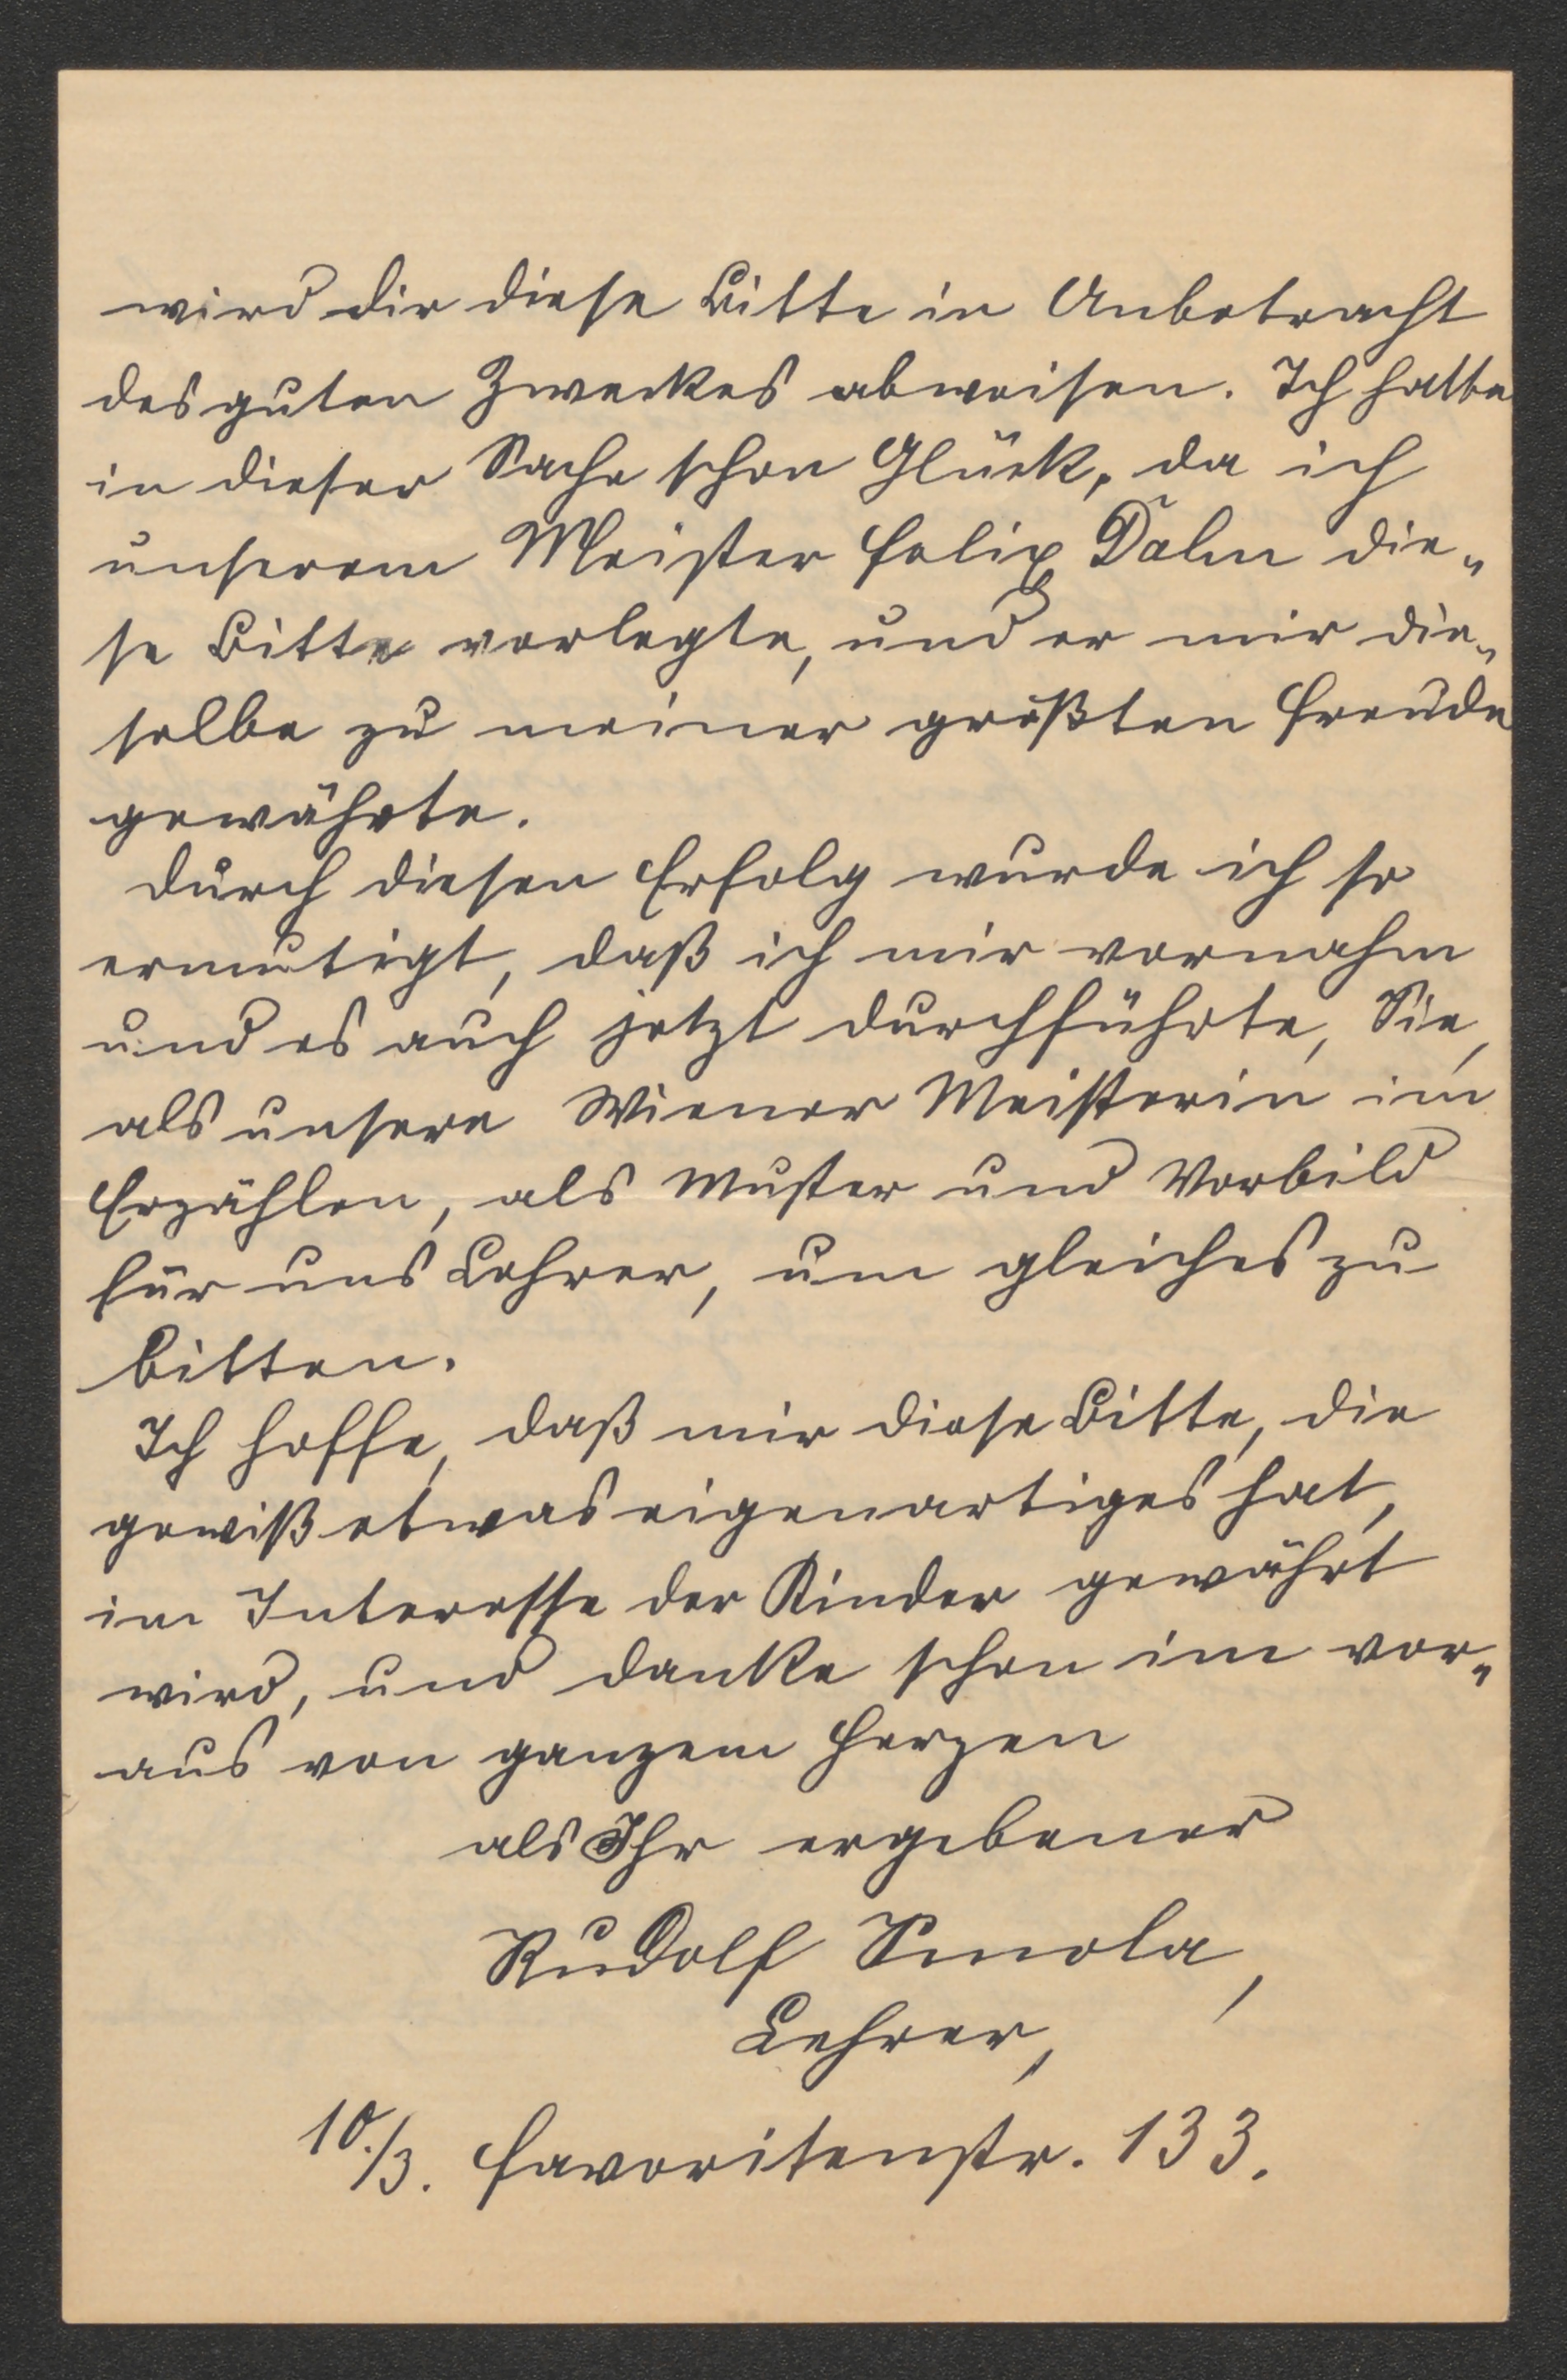 wird dir diese Bitte in Anbetracht
des guten Zweckes abweisen. Ich hatte
in dieser Sache schon Glück, da ich
unserem Meister Felix Dahn die-
se Bitte vorlegte, und er mir die-
selbe zu meiner größten Freude
gewährte.
Durch diesen Erfolg wurde ich so
ermutigt, daß ich mir vornahm
und es auch jetzt durchführte, Sie,
als unsere Wiener Meisterin im
Erzählen, als Muster und Vorbild
für uns Lehrer, um gleiches zu
bitten.
Ich hoffe, daß mir diese Bitte, die
gewiß etwas eigenartiges hat,
im Interesse der Kinder gewährt
wird, und danke schon im vor-
aus von ganzem Herzen
als Ihr ergebener
Rudolf Smola,
Lehrer,
10./3. Favoritenstr. 133.